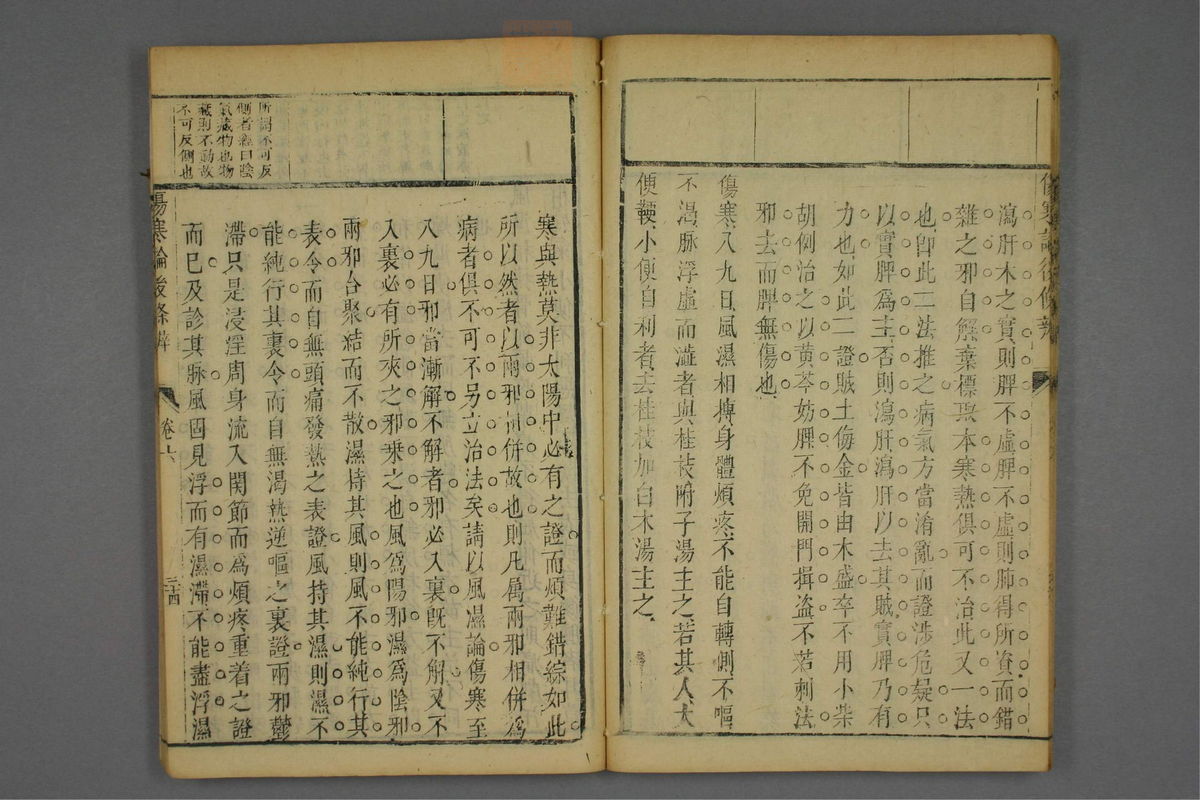 瀉肝木之實則脾不虛脾不虛則肺得所資而錯
雜之邪自解棄標取本寒熱俱可不治此又一法
也卽此二法推之病氣方當淆亂而證涉危疑只
以實脾爲主否則瀉肝瀉肝以去其賊實脾乃有
力也如此二證賊土侮金皆由木盛卒不用小柴
胡例治之以黄芩妨脾不免開門揖盗不若刺法
邪去而脾無傷也
傷寒八九日風濕相摶身體煩疼不能自轉側不嘔
不渴脉浮虛而濇者與桂枝附子湯主之若其人大
便鞕小便自利者去桂枝加白术湯主之
所謂不可反
側者經曰陰
氣藏物也物
藏則不動故
不可反側也
寒與熱莫非太陽中必有之證而煩難錯綜如此
所以然者以兩邪相併故也則凡属兩邪相併爲
病者俱不可不另立治法矣請以風濕論傷寒至
八九日邪當漸解不解者邪必入裏旣不解又不
入裏必有所夾之邪乗之也風爲陽邪濕爲陰邪
兩邪合聚結而不散濕持其風則風不能純行其
表令而自無頭痛發熱之表證風持其濕則濕不
能純行其裏令而自無渴熱逆嘔之裏證兩邪欝
滯只是浸淫周身流入関節而爲煩疼重着之證
而已及診其脉風固見浮而有濕滯不能盡浮濕
傷寒論後條辨
卷六
三十四